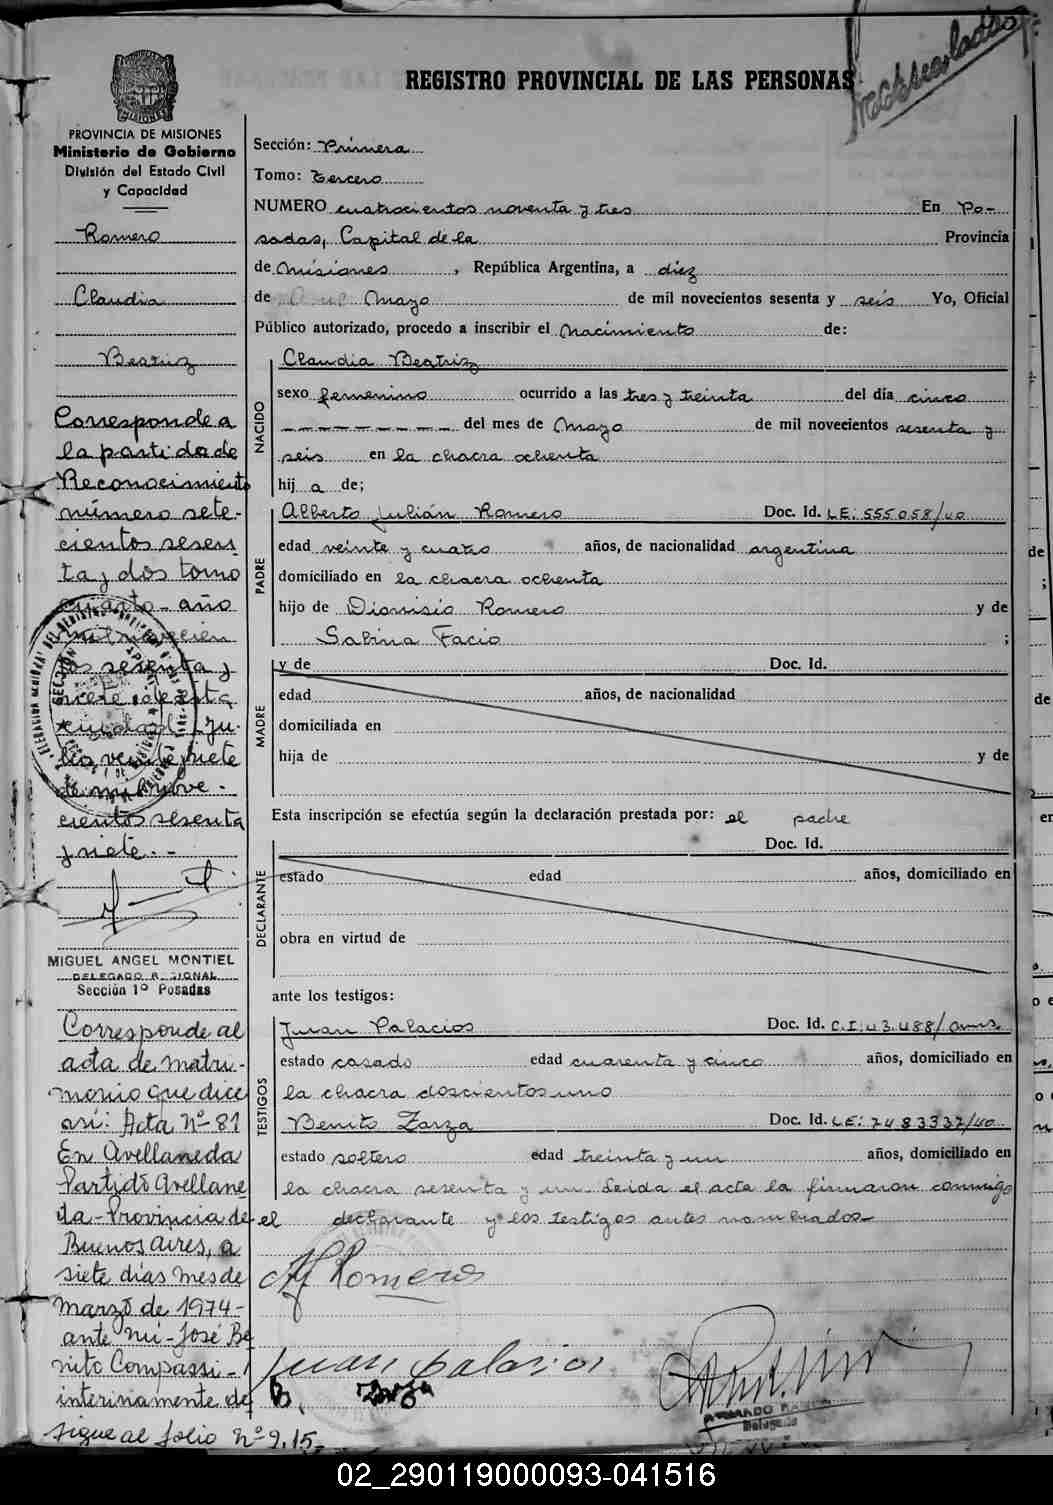 REGISTRO PROVINCIAL DE LAS PERSONAS
PROVINCIA DE MISIONES
Ministerio de Gobierno
División del Estado Civil
y Capacidad
Romero
Claudia
Beatriz
Corresponde a
la partida de
Reconocimiento
número sete-
cientos sesen
ta y dos tomo
cuarto - año
mil novecien
tos sesenta y
siete de esta
ciudad. Ju-
lio veintisiete
de mil nove-
cientos sesenta
y siete. -
MIGUEL ANGEL MONTIEL
DELEGADO REGIONAL
Sección 1º Posadas
Corresponde al
acta de matri-
monio que dice
así: Acta Nº 81
En Avellaneda
Partido Avellane
da - Provincia de
Buenos Aires, a
siete días mes de
marzo de 1974 -
ante mí - José Be
nito Compassi -
interinamente de
sigue al folio Nº 9.15-
Sección: Primera
Tomo: Tercero
NUMERO cuatrocientos noventa y tres En Po-
sadas, Capital de la Provincia
de Misiones, República Argentina, a diez
de Mayo de mil novecientos sesenta y seis Yo, Oficial
Público autorizado, procedo a inscribir el Nacimiento de:
NACIDO
Claudia Beatriz
sexo femenino ocurrido a las tres y treinta del día cinco
--------- del mes de Mayo de mil novecientos sesenta y
seis en la chacra ochenta
hij a de;
PADRE
Alberto Julián Romero Doc. Id. LE: 555058/40
edad veinte y cuatro años, de nacionalidad argentina
domiciliado en la chacra ochenta
hijo de Dionisio Romero y de
Sabina Facio ;
MADRE
y de Doc. Id.
edad años, de nacionalidad
domiciliada en
hija de y de
Esta inscripción se efectúa según la declaración prestada por: el padre
DECLARANTE
Doc. Id.
estado edad años, domiciliado en
obra en virtud de
ante los testigos:
TESTIGOS
Juan Palacios Doc. Id. C.I: 43.488/
estado casado edad cuarenta y cinco años, domiciliado en
la chacra doscientos uno
Benito Zarza Doc. Id. LE: 7483337/40
estado soltero edad treinta y un años, domiciliado en
la chacra sesenta y un. Leida el acta la firmaron conmigo
el declarante y los testigos antes nombrados-
Romero
Juan Palacios
B. Zarza
ARMANDO
Delegado
02_290119000093-041516